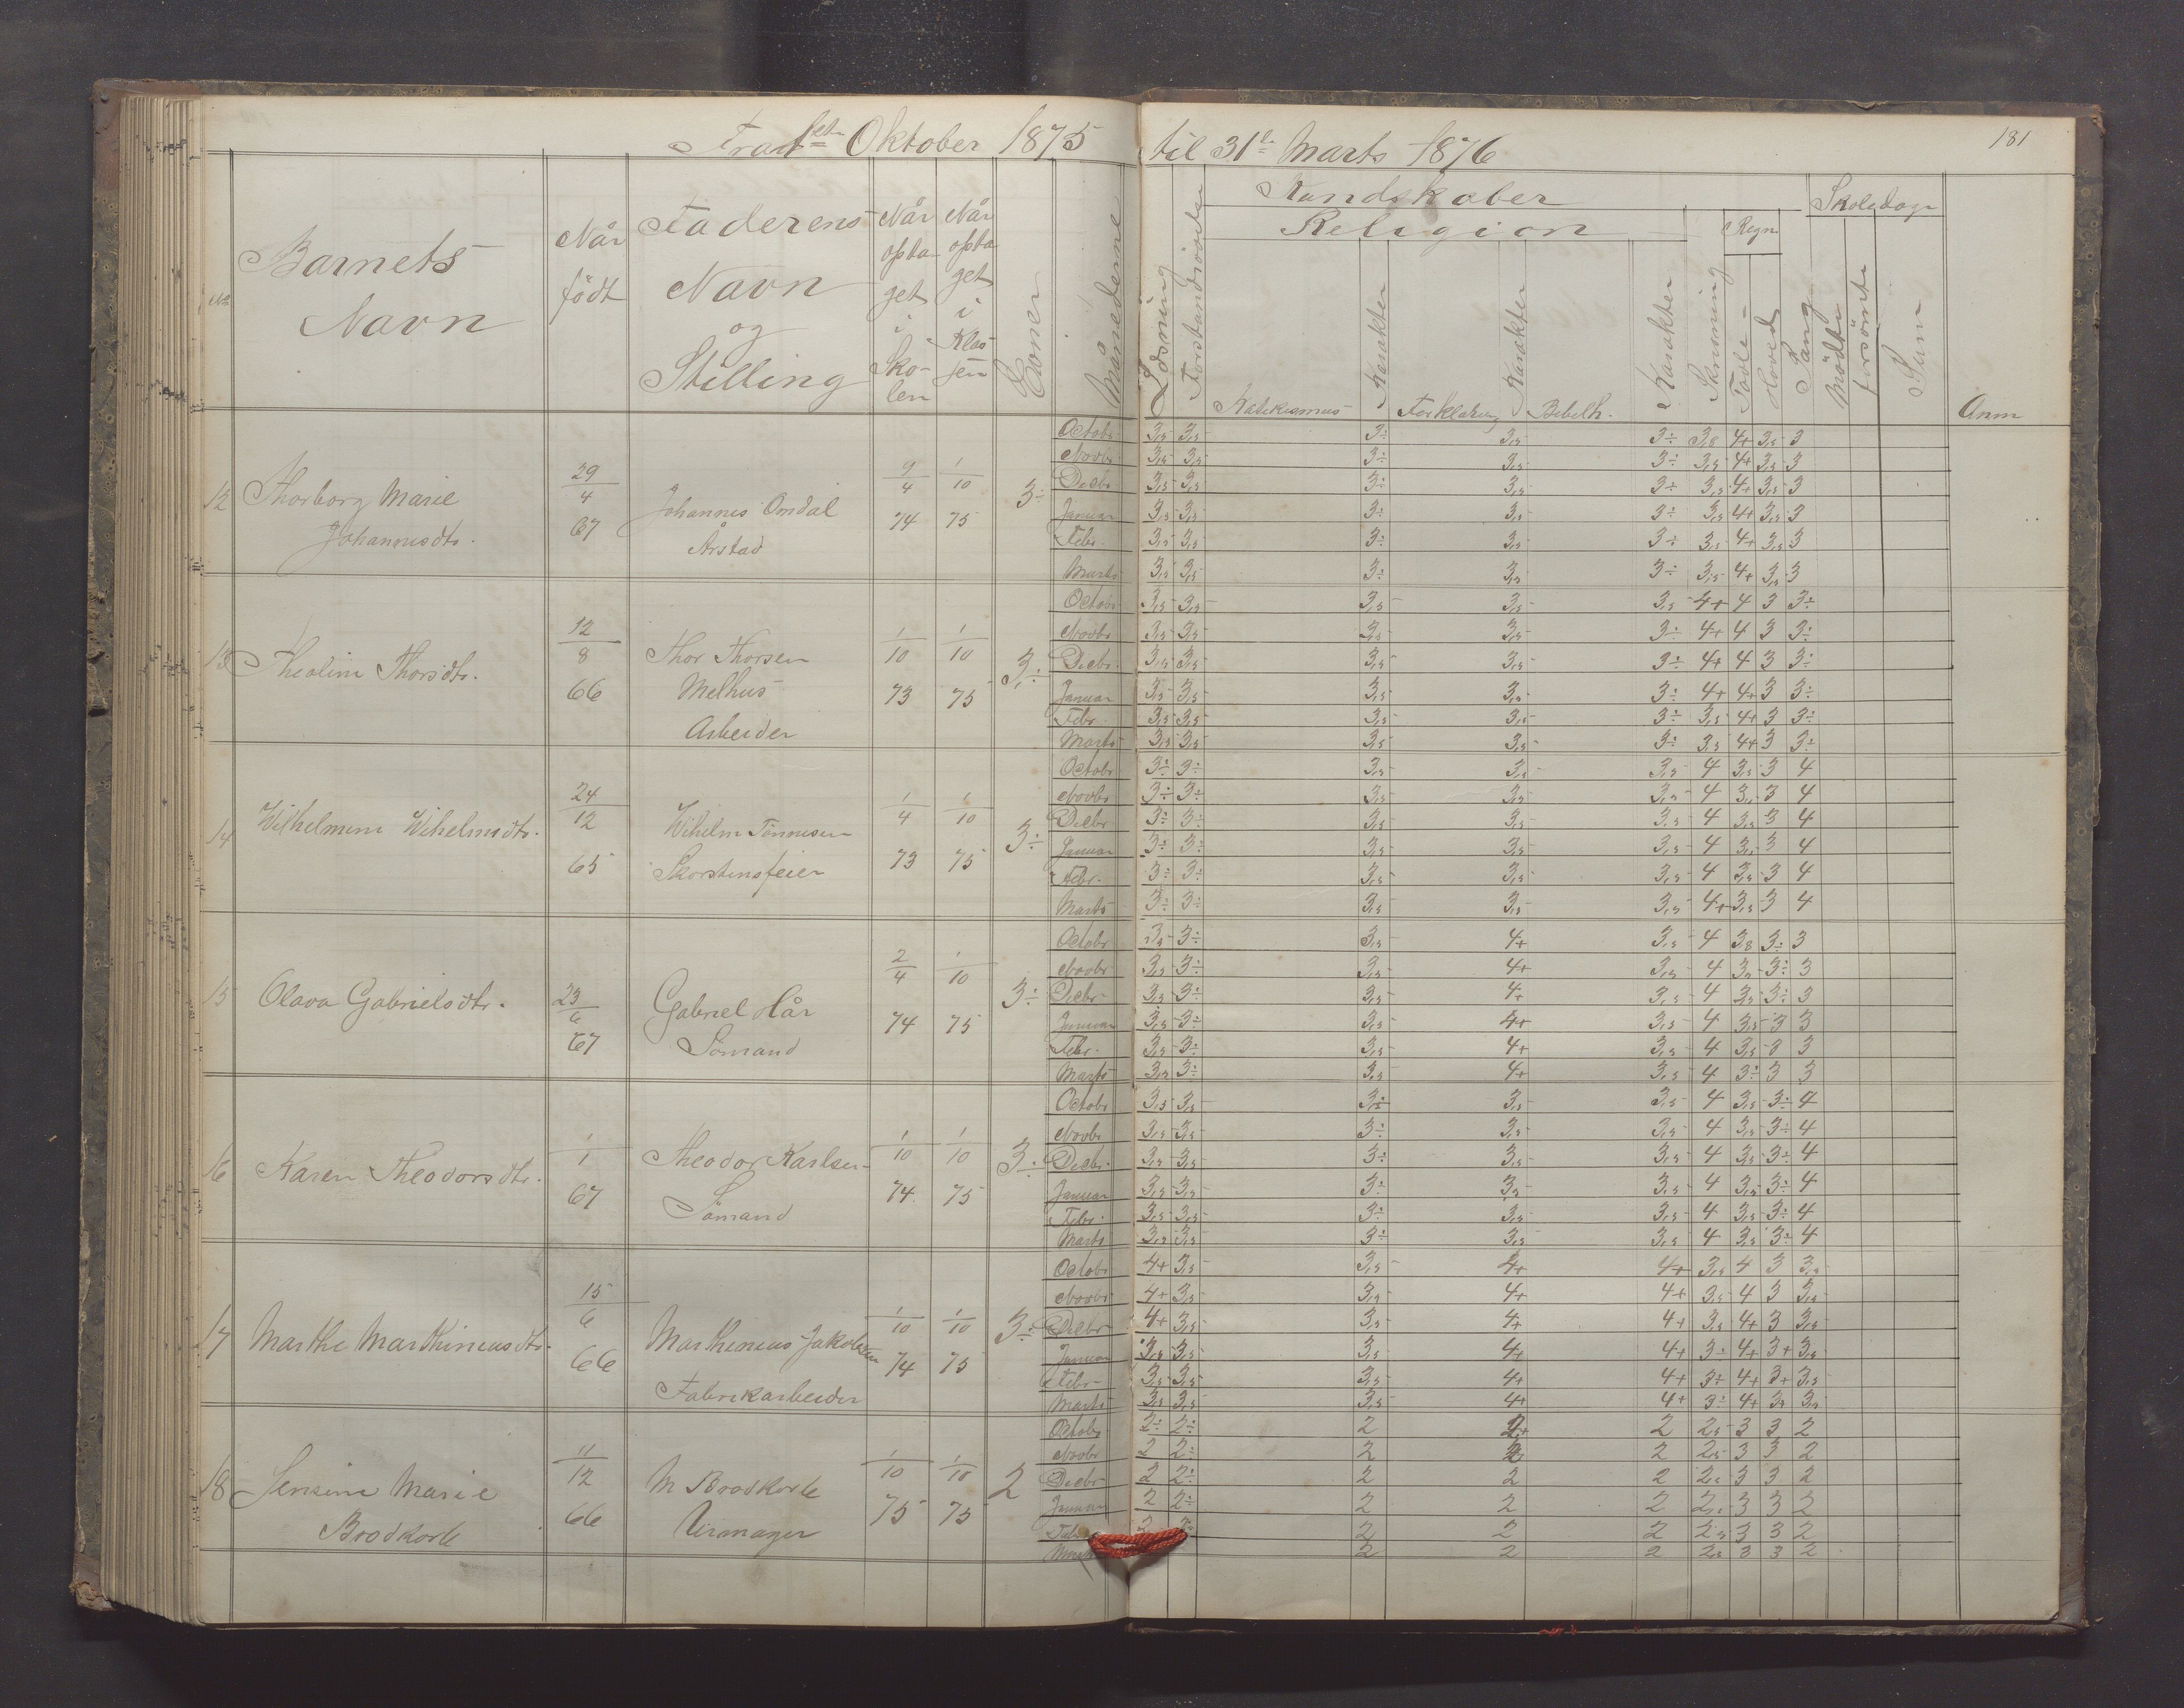 Fra 1ste Oktober 1875 til 31te Marts 1876
181
No
Barnets Navn
Når født
Faderens Navn og Stilling
Når opta-get i Sko-len
Når opta-get i Klas-sen
Evner
Månederne
Læsning
Forstandsøvelse
Kundskaber
Religion
Katekismus
Karakter
Forklaring
Karakter
Bibelh.
Karakter
Skrivning
Regn.
Tavle-
Hoved
Sang
Skoledage
Mödte
forsömte
Sum
Anm
12 Thorborg Marie Johannesdtr. 29/4 67 Johannes Omdal Årstad 9/4 74 1/10 75 3÷
Octobr 3,5 3,5 3÷ 3,5 3÷ 3,8 4+ 3,5 3
Novbr 3,5 3,5 3÷ 3,5 3÷ 3,5 4+ 3,5 3
Decbr 3,5 3,5 3÷ 3,5 3÷ 3,5 4+ 3,5 3
Januar 3,5 3,5 3÷ 3,5 3÷ 3,5 4+ 3,5 3
Febr. 3,5 3,5 3÷ 3,5 3÷ 3,5 4+ 3,5 3
Marts 3,5 3,5 3÷ 3,5 3÷ 3,5 4+ 3,5 3
13 Theoline Thorsdtr. 12/8 66 Thor Thorsen Melhus Arbeider 1/10 73 1/10 75 3,÷
Octobr 3,5 3,5 3,5 3,5 3,5 4+ 4 3 3÷
Novbr 3,5 3,5 3,5 3,5 3÷ 4+ 4 3 3÷
Decbr. 3,5 3,5 3,5 3,5 3÷ 4+ 4 3 3÷
Januar 3,5 3,5 3,5 3,5 3÷ 4+ 4+ 3 3÷
Febr. 3,5 3,5 3,5 3,5 3÷ 3,5 4+ 3 3÷
Marts 3,5 3,5 3,5 3,5 3÷ 3,5 4+ 3 3÷
14 Wilhelmine Wihelmsdtr. 24/12 65 Wihelm Tönnesen Skorstensfeier 1/4 73 1/10 75 3÷
Octobr 3÷ 3÷ 3,5 3,5 3,5 4 3,5 3 4
Novbr 3÷ 3÷ 3,5 3,5 3,5 4 3,5 3 4
Decbr 3÷ 3÷ 3,5 3,5 3,5 4 3,5 3 4
Januar 3÷ 3÷ 3,5 3,5 3,5 4 3,5 3 4
Febr. 3÷ 3÷ 3,5 3,5 3,5 4 3,5 3 4
Marts 3÷ 3÷ 3,5 3,5 3,5 4+ 3,5 3 4
15 Olava Gabrielsdtr. 23/6 67 Gabriel Hår Sömand 2/4 74 1/10 75 3÷
Octobr 3,5 3÷ 3,5 4+ 3,5 4 3,8 3÷ 3
Novbr 3,5 3÷ 3,5 4+ 3,5 4 3,5 3÷ 3
Decbr 3,5 3÷ 3,5 4+ 3,5 4 3,5 3÷ 3
Januar 3,5 3÷ 3,5 4+ 3,5 4 3,5 3 3
Febr. 3,5 3÷ 3,5 4+ 3,5 4 3,5 3 3
Marts 3,5 3÷ 3,5 4+ 3,5 4 3÷ 3 3
16 Karen Theodorsdtr. 1/1 67 Theodor Karlsen Sömand 1/10 74 1/10 75 3÷
Octobr 3,5 3,5 3÷ 3,5 3,5 4 3,5 3÷ 4
Novbr 3,5 3,5 3÷ 3,5 3,5 4 3,5 3÷ 4
Decbr. 3,5 3,5 3÷ 3,5 3,5 4 3,5 3÷ 4
Januar 3,5 3,5 3÷ 3,5 3,5 4 3,5 3÷ 4
Febr. 3,5 3,5 3÷ 3,5 3,5 4 3,5 3÷ 4
Marts 3,5 3,5 3÷ 3,5 3,5 4 3,5 3÷ 4
17 Marthe Marthiniusdtr. 15/6 66 Marthinius Jakobsen Fabrikarbeider 1/10 74 1/10 75 3÷
Octobr 4+ 3,5 3,5 4+ 4+ 3,5 4 3 3,5
Novbr 4+ 3,5 3,5 4+ 4+ 3,5 4 3 3,5
Decbr 4+ 3,5 3,5 4+ 4+ 3,5 4+ 3 3,5
Januar 3,5 3,5 3,5 4+ 4+ 3÷ 4+ 3+ 3,5
Febr 3,5 3,5 3,5 4+ 4+ 3+ 4+ 3+ 3,5
Marts 3,5 3,5 3,5 4+ 4+ 3÷ 4+ 3+ 3,5
18 Jensine Marie Brodkorb 11/12 66 M Brodkorb Urmager 1/10 75 1/10 75 2
Octobr 2÷ 2÷ 2 2 2,5 3 3 2
Novbr 2 2÷ 2 2 2,5 3 3 2
Decbr 2 2÷ 2 2 2 2,5 3 3 2
Januar 2 2÷ 2 2 2 2,5 3 3 2
Febr 2 2 2 2,5 3 3 2
Marts 2 2 2 2,5 3 3 2